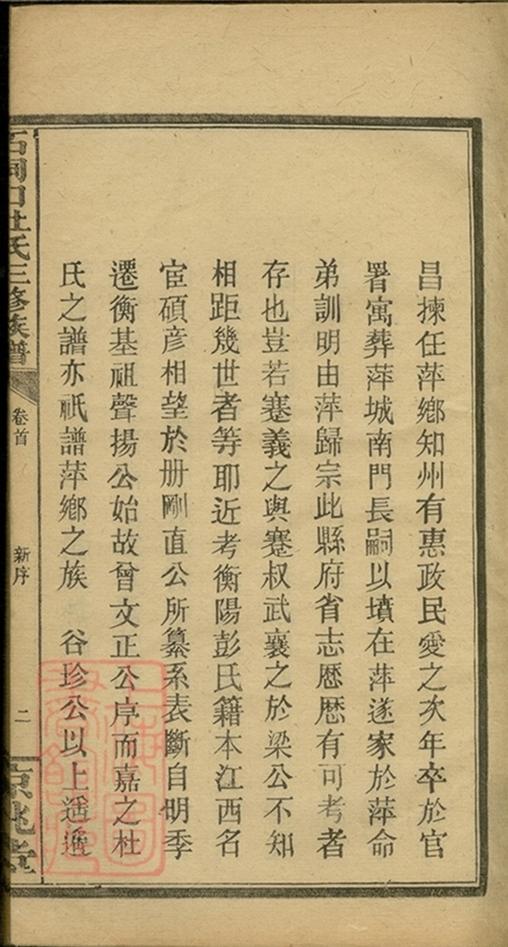 昌揀任萍鄉知州有惠政民愛之次年卒於官
署寓葬萍城南門長嗣以墳在萍遂家於萍命
弟訓明由萍歸宗此縣府省志厯厯有可考者
存也豈若蹇義之與蹇叔武襄之於梁公不知
相距幾世者等耶近考衡陽彭氏籍本江西名
宦碩彦相望於册剛直公所纂系表斷自明季
遷衡基祖聲揚公始故曾文正公序而嘉之杜
氏之譜亦祇譜萍鄉之族 谷珍公以上遥遥
石洞口杜氏三修族譜
卷首
新序
二
京兆堂